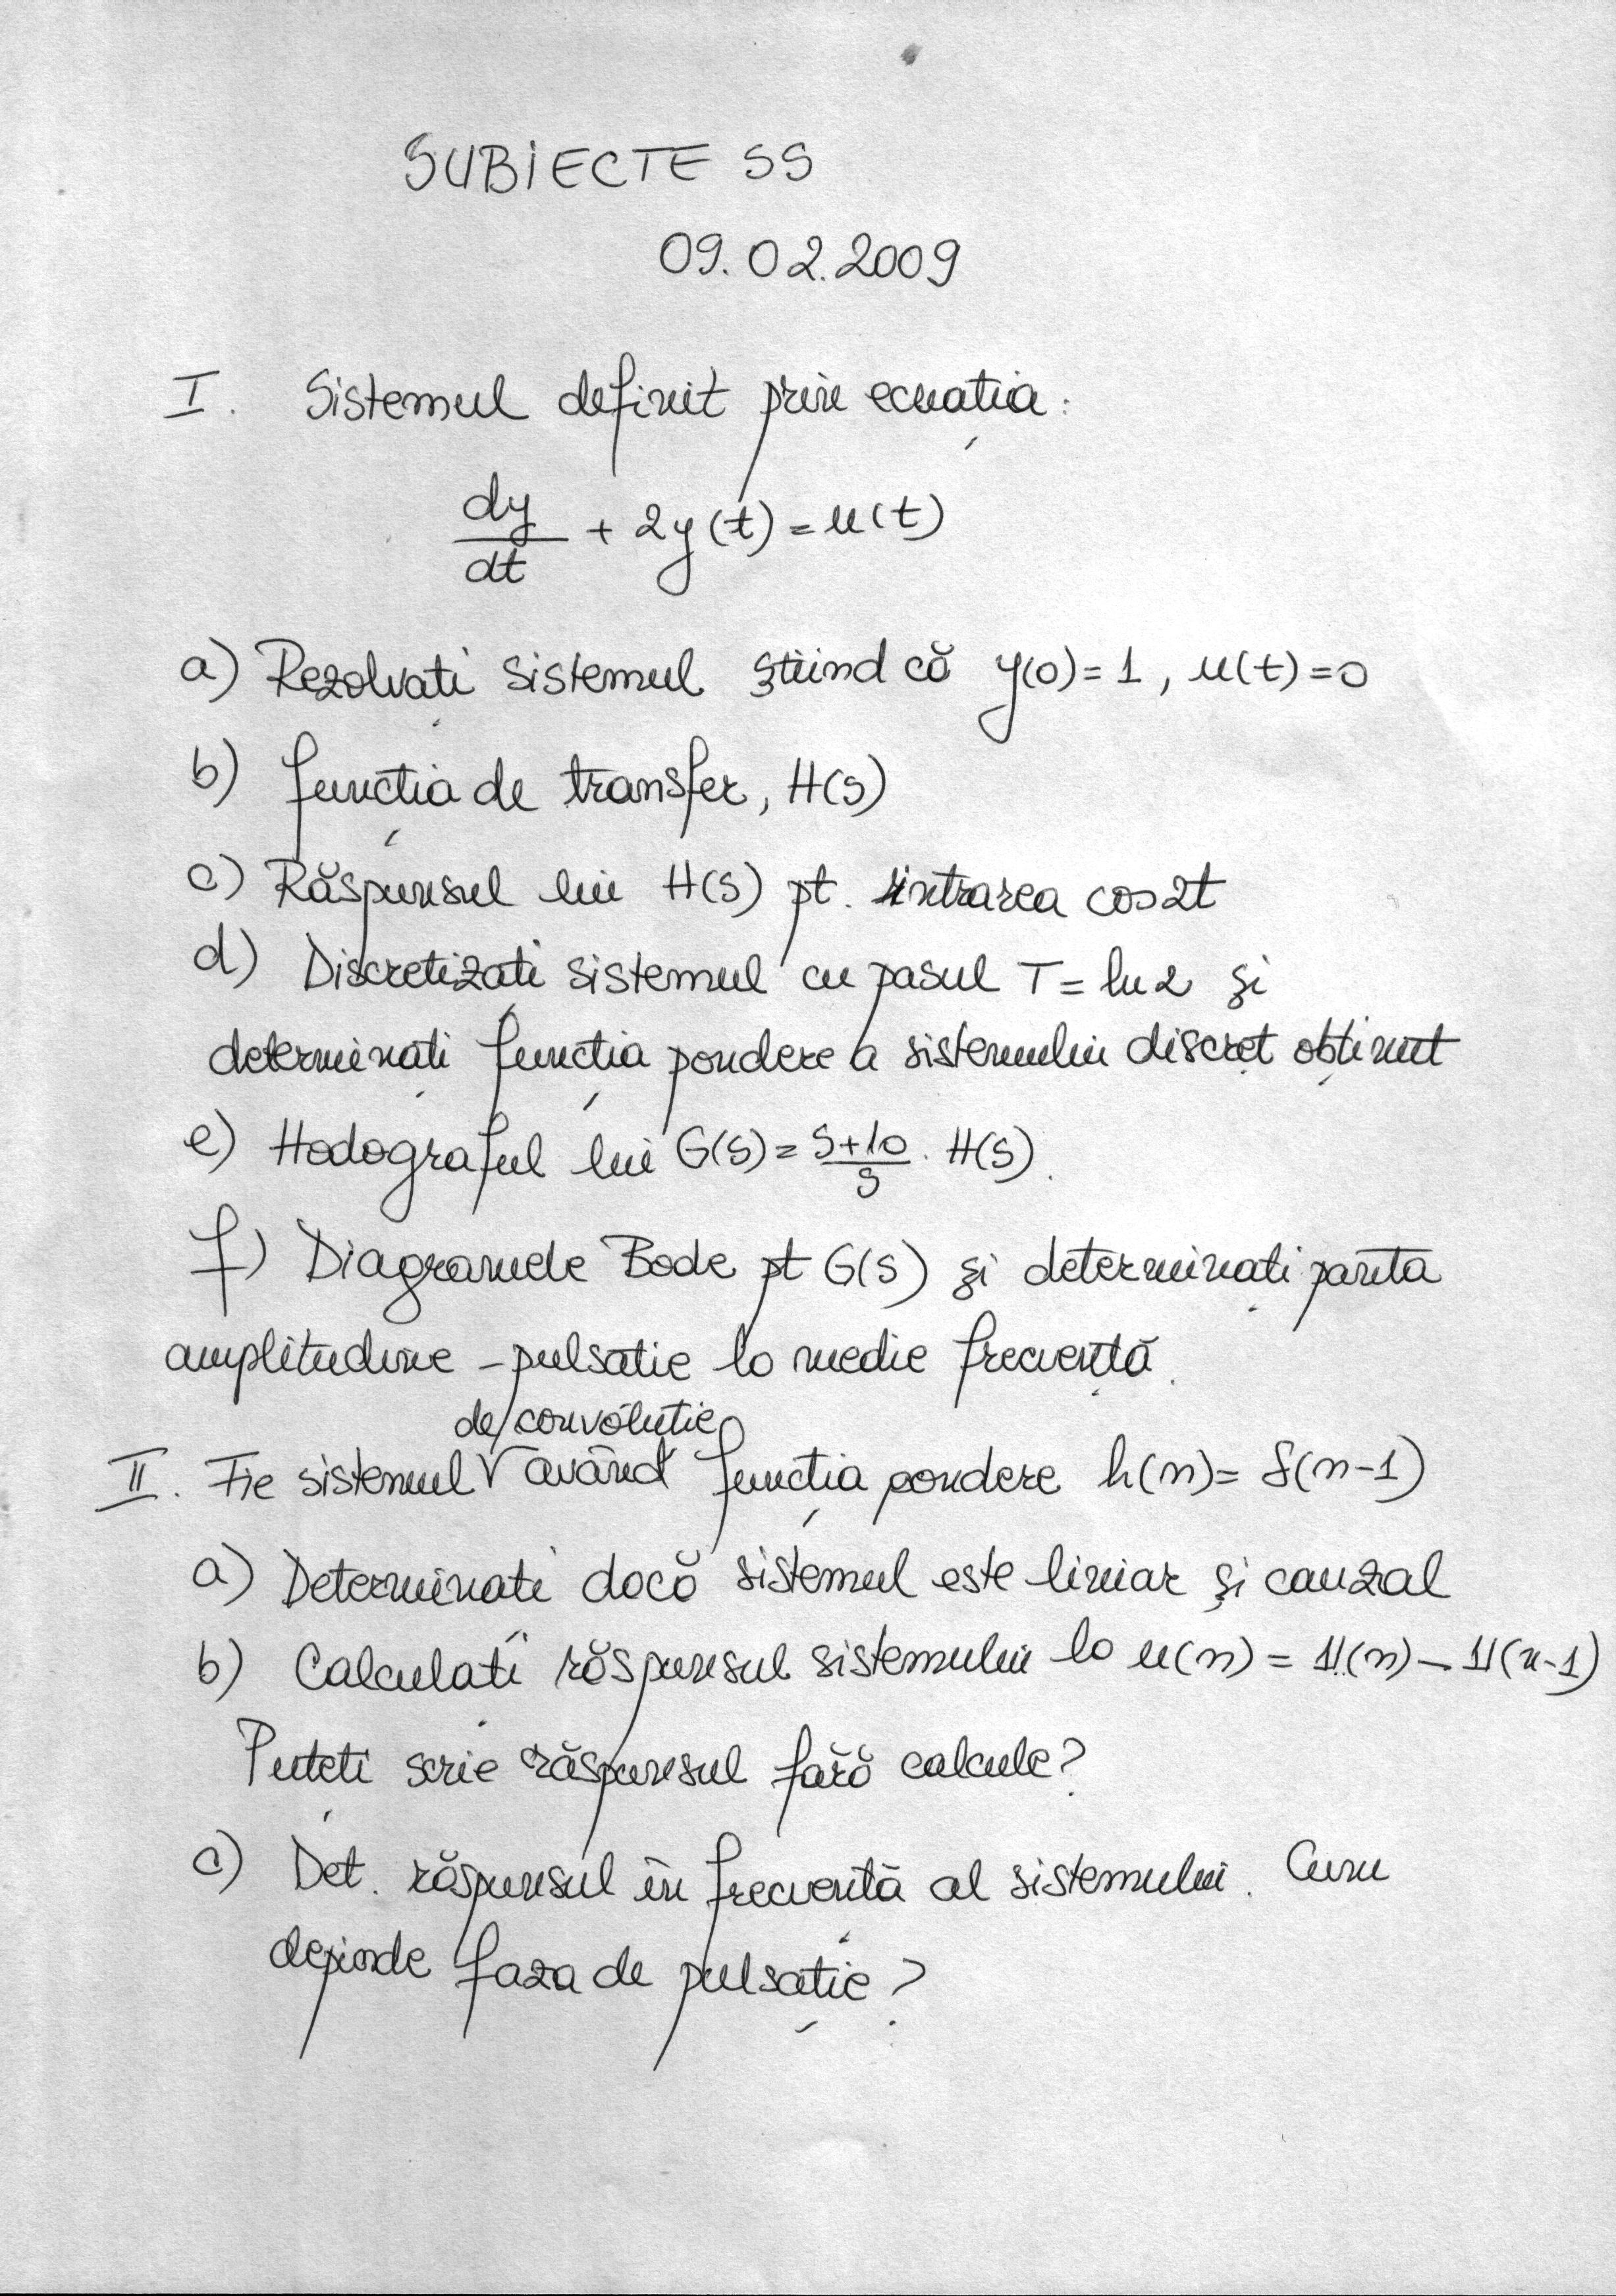 SUBIECTE SS
09.02.2009
I. Sistemul definit prin ecuația:
dy/dt + 2y(t) = u(t)
a) Rezolvați sistemul știind că y(0) = 1, u(t) = 0
b) funcția de transfer, H(s)
c) Răspunsul lui H(s) pt. intrarea cos2t
d) Discretizati sistemul cu pasul T = ln 2 și
determinați funcția pondere a sistemului discret obținut
e) Hodograful lui G(s) = (s+10)/s · H(s).
f) Diagramele Bode pt G(s) și determinați panta
amplitudine - pulsatie la medie frecvență.
de convoluție
II. Fie sistemul √ având funcția pondere h(n) = δ(n-1)
a) Determinati dacă sistemul este liniar și cauzal
b) Calculați răspunsul sistemului la u(n) = 1(n) - 1(n-1)
Puteți scrie răspunsul fără calcule?
c) Det. răspunsul în frecvență al sistemului. Cum
depinde faza de pulsație?